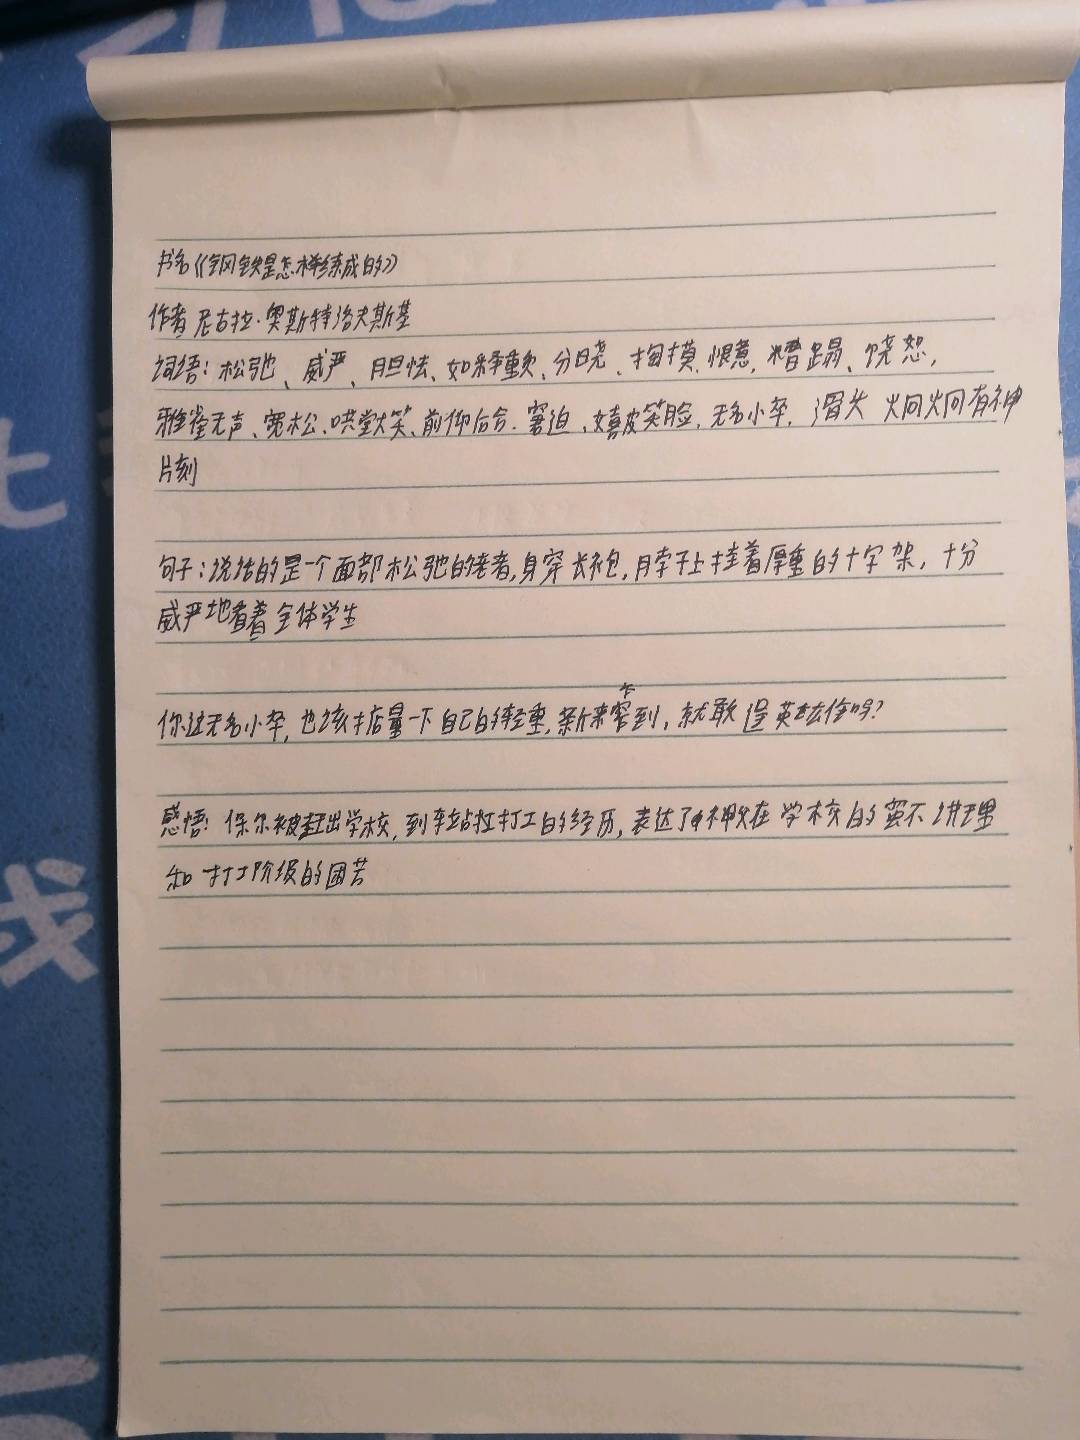 书名《钢铁是怎样练成的》
作者 尼古拉·奥斯特洛夫斯基
词语：松弛、威严、胆怯、如释重负、分晓、掏摸、惬意，糟蹋、饶恕，
雅雀无声、宽松、哄堂大笑、前仰后合、窘迫、嬉皮笑脸，无名小卒，滑头 炯炯有神
片刻
句子：说话的是一个面部松弛的老者，身穿长袍，脖子上挂着厚重的十字架，十分
威严地看着全体学生
乍
你这无名小卒，也该掂量一下自己的轻重，新来 到，就敢逞英雄吗？
感悟：保尔被赶出学校，到车站打工的经历，表达了神父在学校的蛮不讲理
和打工阶级的困苦